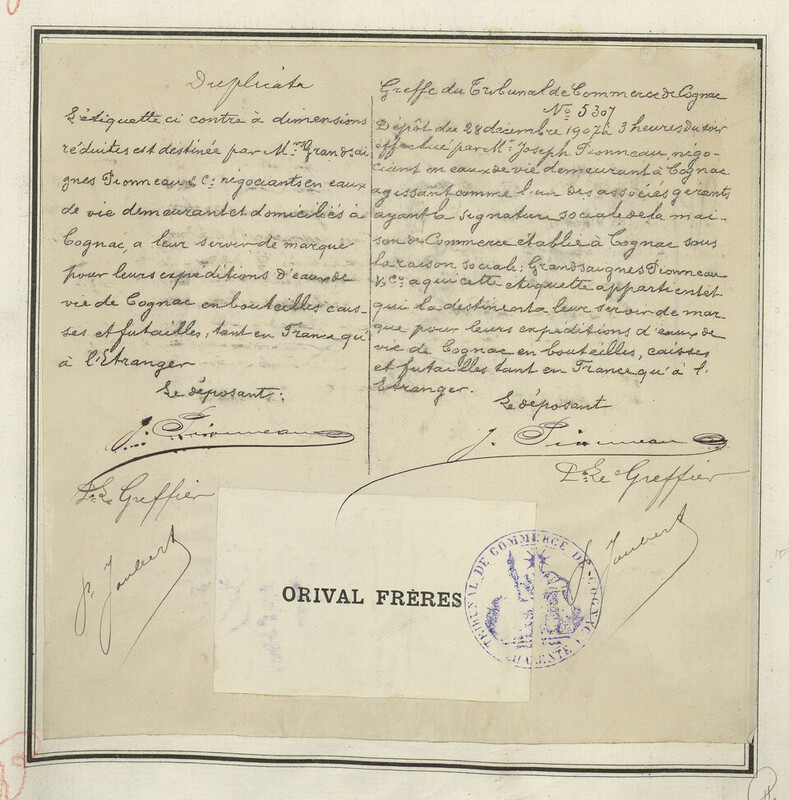 Duplicata
L'étiquette ci contre à dimensions
réduites est destinée par Mrs Grandsai
gnes Pionneau & Co. négociants en eaux
de vie demeurant et domiciliés à
Cognac, a leur servir de marque
pour leurs expéditions d'eaux de
vie de Cognac en bouteilles cais-
ses et futailles, tant en France qu'
à l'Etranger
Le déposant:
J. Pionneau
Pr Le Greffier
P. Joubert
Greffe du Tribunal de Commerce de Cognac
No 5307
Dépôt du 28 décembre 1907 à 3 heures du soir
effectué par Mr. Joseph Pionneau, négo-
ciant en eaux de vie demeurant à Cognac
agissant comme l'un des associés gérants
ayant la signature sociale de la mai-
son de Commerce établie à Cognac sous
la raison sociale: Grandsaignes Pionneau
& Co. a qui cette etiquette appartient et
qui la destinent a leur servir de mar-
que pour leurs expéditions d'eaux de
vie de Cognac en bouteilles, caisses
et futailles tant en France qu'à l'
Etranger.
Le déposant
J. Pionneau
Pr Le Greffier
P. Joubert
ORIVAL FRÈRES
TRIBUNAL DE COMMERCE DE COGNAC
CHARENTE